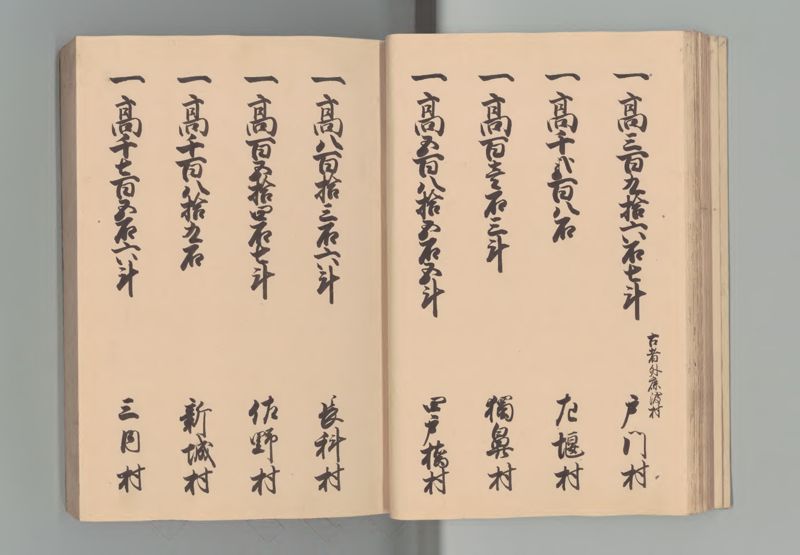 一高三百九拾六石七斗 戸門村
古者外广波村
一高千弐百八石 左堰村
一高百壱石三斗 獨鼻村
一高五百八拾五石五斗 四戸橋村
一高八百拾三石六斗 長科村
一高百五拾四石七斗 佐野村
一高千百八拾九石 新城村
一高千七百五石六斗 三内村